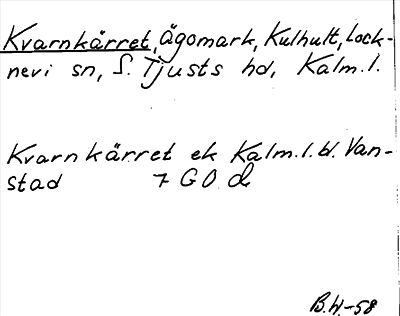 Kvarnkärret, Ägomark, Kulhult, Lock-
nevi sn, S. Tjusts hd, Kalm.l.
Kvarnkärret ek Kalm.l. bl. Van-
stad 7 G O d
B.W.-58